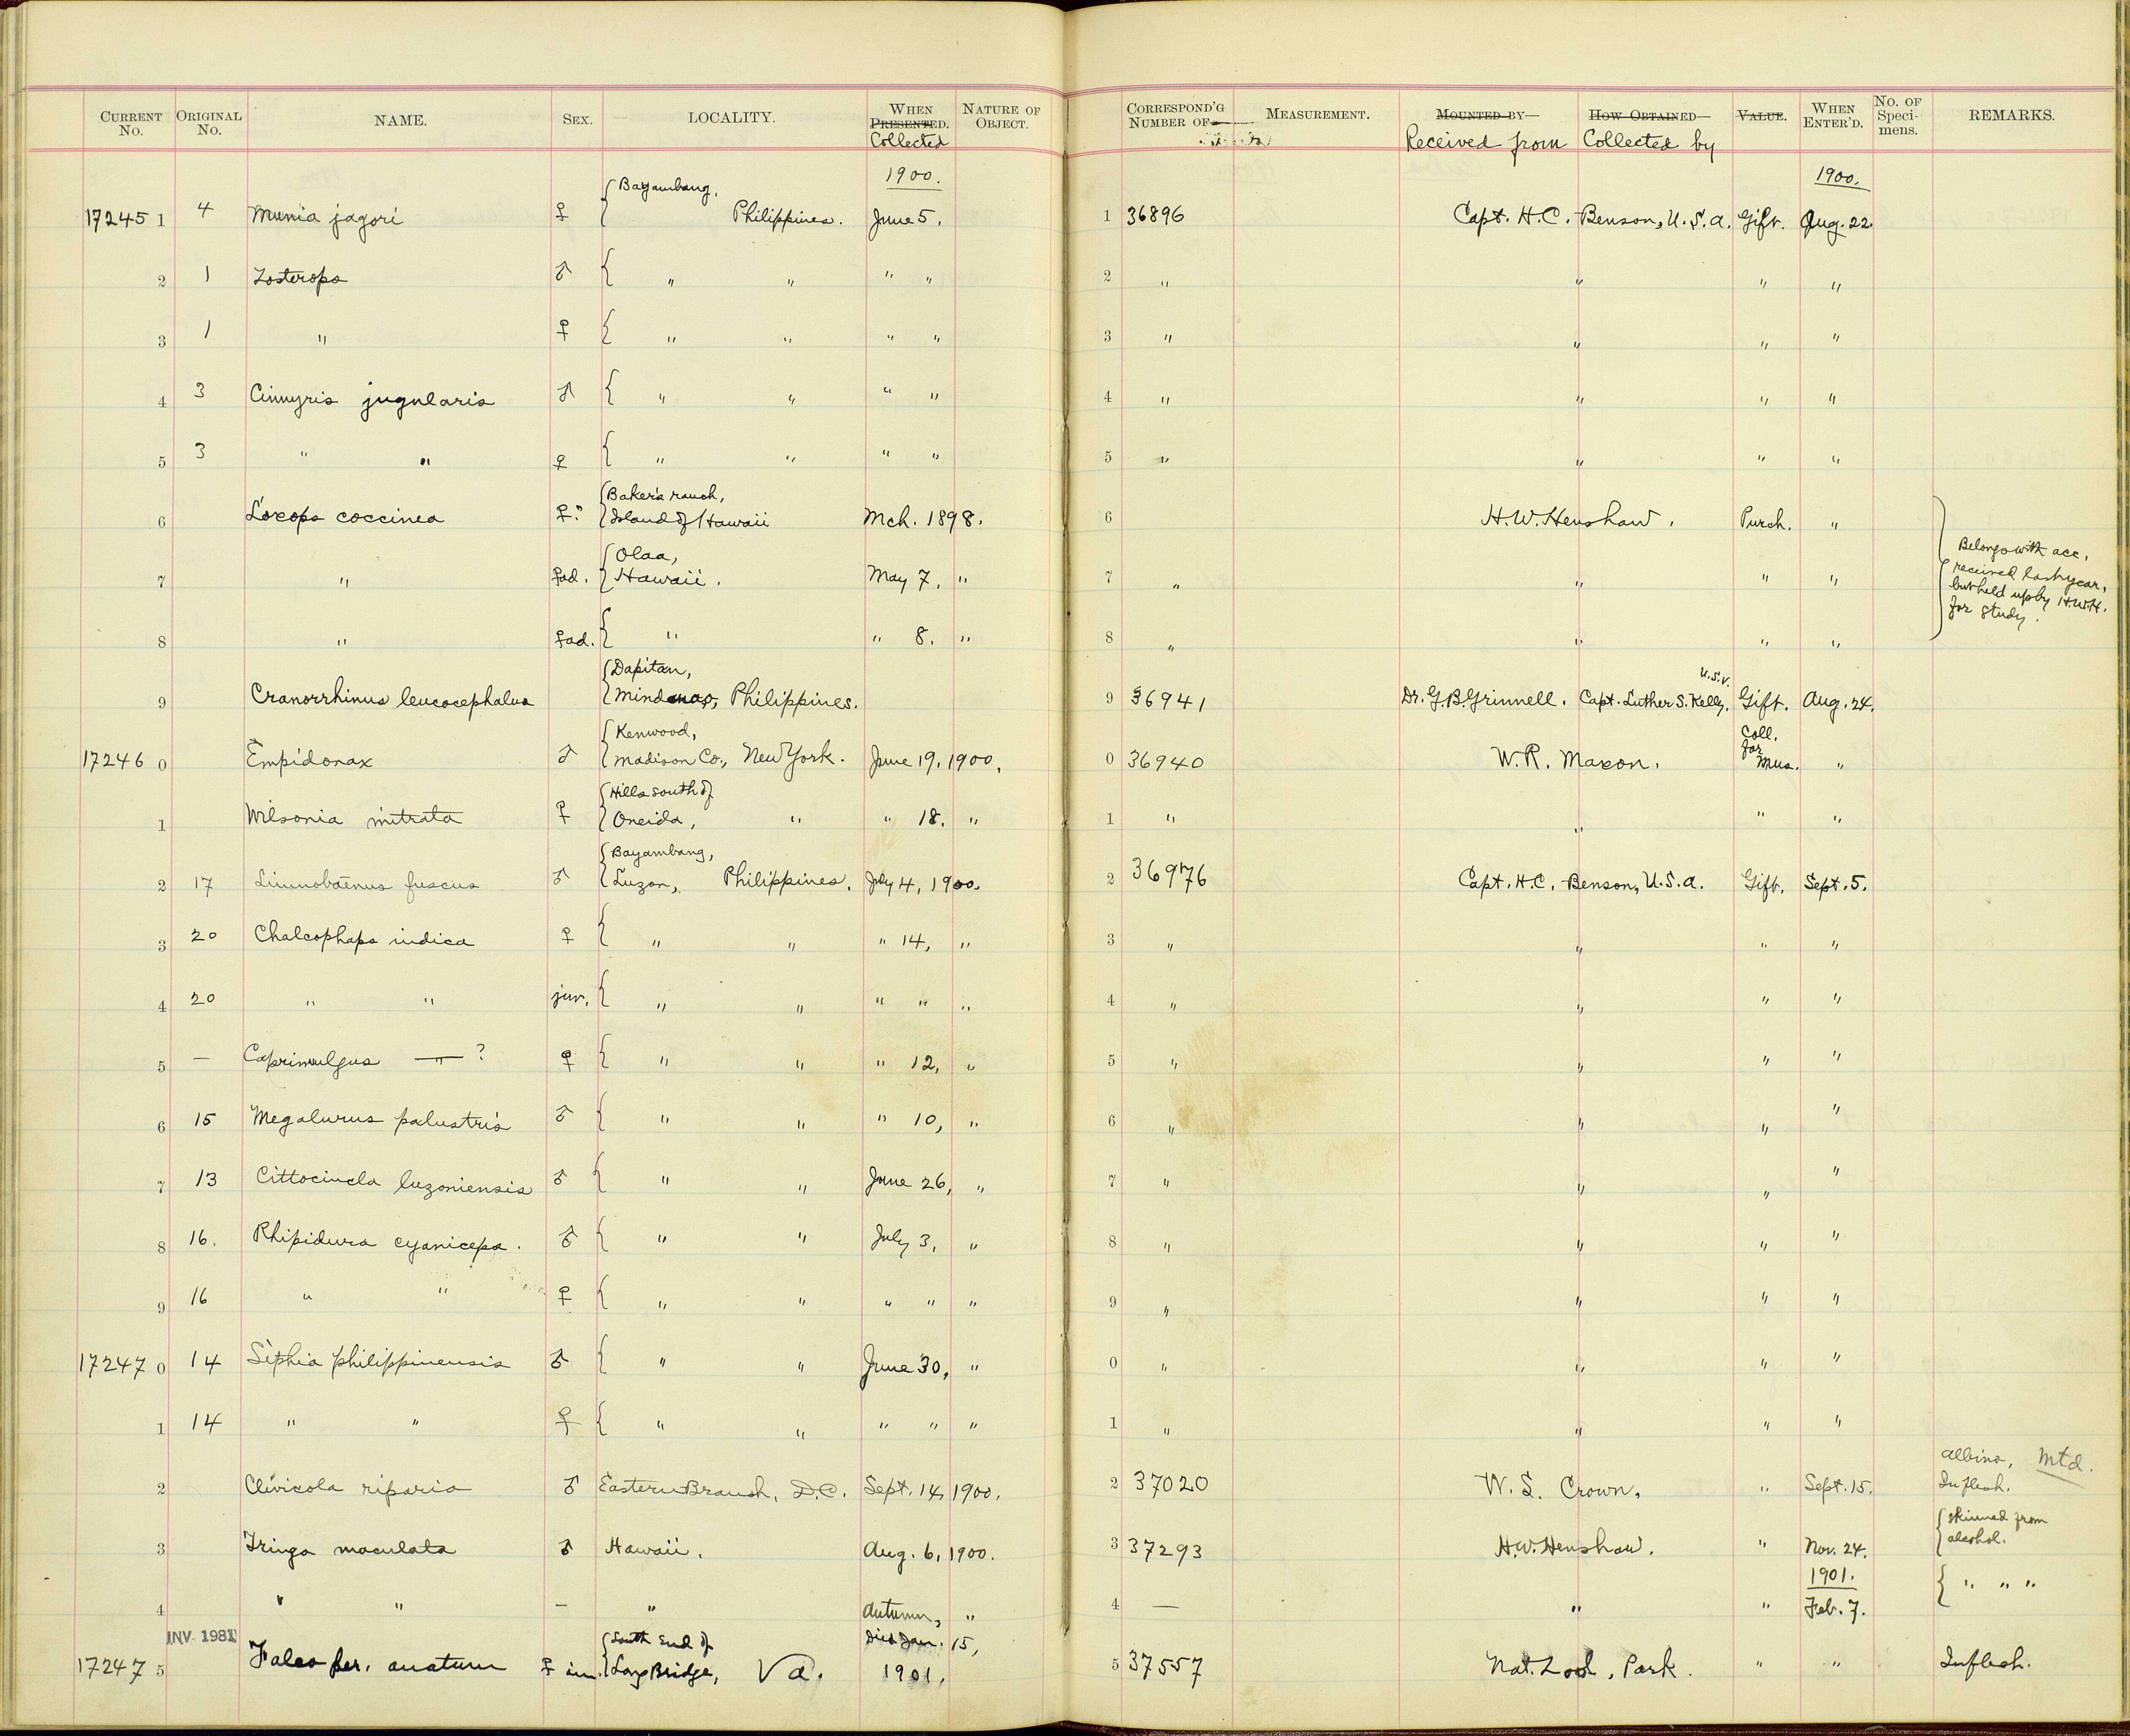 CURRENT No. ORIGINAL No. NAME. SEX. LOCALITY. WHEN PRESENTED. Collected NATURE OF OBJECT. CORRESPOND'G NUMBER OF MEASUREMENT. MOUNTED BY Received from HOW OBTAINED Collected by VALUE. WHEN ENTER'D. No. OF Speci- mens. REMARKS.
1900. 1900.
17245 1 4 Munia jagori ♀ { Bayambang, Philippines. June 5. 1 36896 Capt. H.C. Benson, U.S.A. Gift. Aug. 22.
2 1 Zosterops ♂ { " " " " 2 " " " "
3 1 " ♀ { " " " " 3 " " " "
4 3 Cinnyris jugularis ♂ { " " " " 4 " " " "
5 3 " " ♀ { " " " " 5 " " " "
6 Loxops coccinea ♀? { Baker's ranch, Island of Hawaii Mch. 1898. 6 H.W. Henshaw. Purch. "
7 " ♀ad. { Olaa, Hawaii. May 7. " 7 " " " " { Belongs with acc. received last year, but held up by H.W.H. for study.
8 " ♀ad. { " " 8. " 8 " " " "
9 Cranorrhinus leucocephalus { Dapitan, Mindanao, Philippines. 9 36941 Dr. G.B. Grinnell. Capt. Luther S. Kelly, U.S.V. Gift. Aug. 24.
17246 0 Empidonax ♂ { Kenwood, Madison Co., New York. June 19, 1900. 0 36940 W.R. Maxon. Coll. for Mus. "
1 Wilsonia mitrata ♀ { Hills south of Oneida, " " 18. " 1 " " " "
2 17 Limnobaenus fuscus ♂ { Bayambang, Luzon, Philippines. July 4, 1900. 2 36976 Capt. H.C. Benson, U.S.A. Gift. Sept. 5.
3 20 Chalcophaps indica ♀ { " " " 14, " 3 " " " "
4 20 " " juv. { " " " " " 4 " " " "
5 — Caprimulgus — " — ? ♀ { " " " 12, " 5 " " " "
6 15 Megalurus palustris ♂ { " " " 10, " 6 " " " "
7 13 Cittocincla luzoniensis ♂ { " " June 26, " 7 " " " "
8 16. Rhipidura cyaniceps. ♂ { " " July 3, " 8 " " " "
9 16 " " ♀ { " " " " " 9 " " " "
17247 0 14 Siphia philippinensis ♂ { " " June 30, " 0 " " " "
1 14 " " ♀ { " " " " " 1 " " " "
2 Clivicola riparia ♂ Eastern Branch, D.C. Sept. 14, 1900. 2 37020 W. S. Crown, " Sept. 15. Albino, Mtd. In flesh.
3 Tringa maculata ♂ Hawaii. Aug. 6, 1900. 3 37293 H.W. Henshaw. " Nov. 24. { skinned from alcohol.
1901.
4 " " — " Autumn, " 4 — " " Feb. 7. { " " "
INV. 1981
17247 5 Falco per. anatum ♀ im. { South End of Long Bridge, Va. Died Jan. 15, 1901. 5 37557 Nat. Zool. Park. " " In flesh.